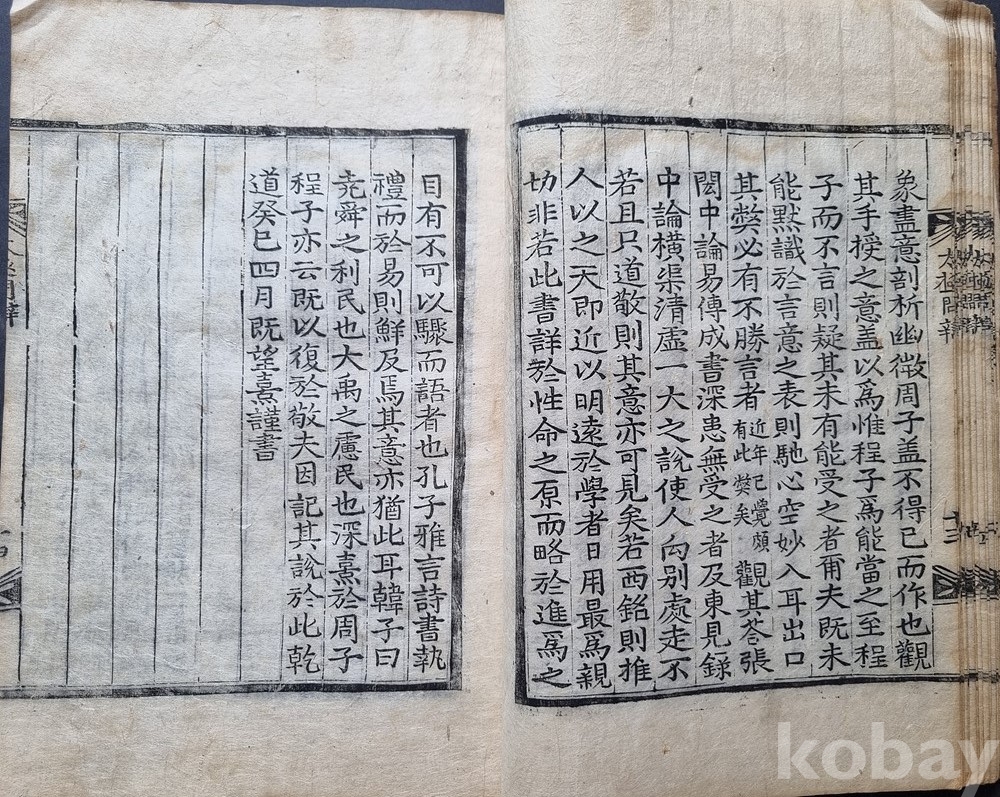 象盡意剖析幽微周子盖不得已而作也觀
其手授之意盖以爲惟程子爲能當之至程
子而不言則疑其未有能受之者甭夫既未
能黙識於言意之表則馳心空妙入耳出口
其弊必有不勝言者近年已覺頗有此弊矣觀其荅張
閎中論易傳成書深患無受之者及東見錄
中論橫渠清虛一大之說使人向別處走不
若且只道敬則其意亦可見矣若西銘則推
人以之天即近以明遠於學者日用最爲親
切非若此書詳於性命之原而略於進爲之
目有不可以驟而語者也孔子雅言詩書執
禮而於易則鮮及焉其意亦猶此耳韓子曰
堯舜之利民也大禹之慮民也深熹於周子
程子亦云既以復於敬夫因記其說於此乾
道癸巳四月既望熹謹書
太極問辨
十三
kobay